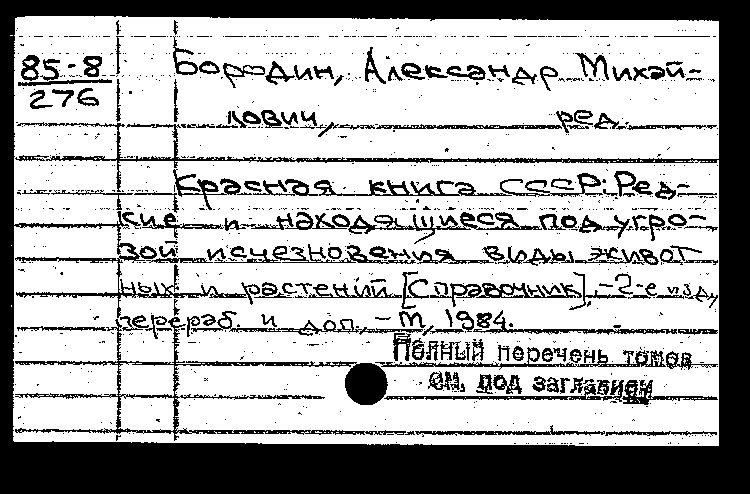 85-8
276
Бородин, Александр Михай-
лович, ред.
Красная книга СССР: Ред-
кие и находящиеся под угро-
зой исчезновения виды живот
ных и растений [Справочник]. - 2-е изд.,
перераб. и доп. - М, 1984.
Полный перечень томов
см. под заглавием